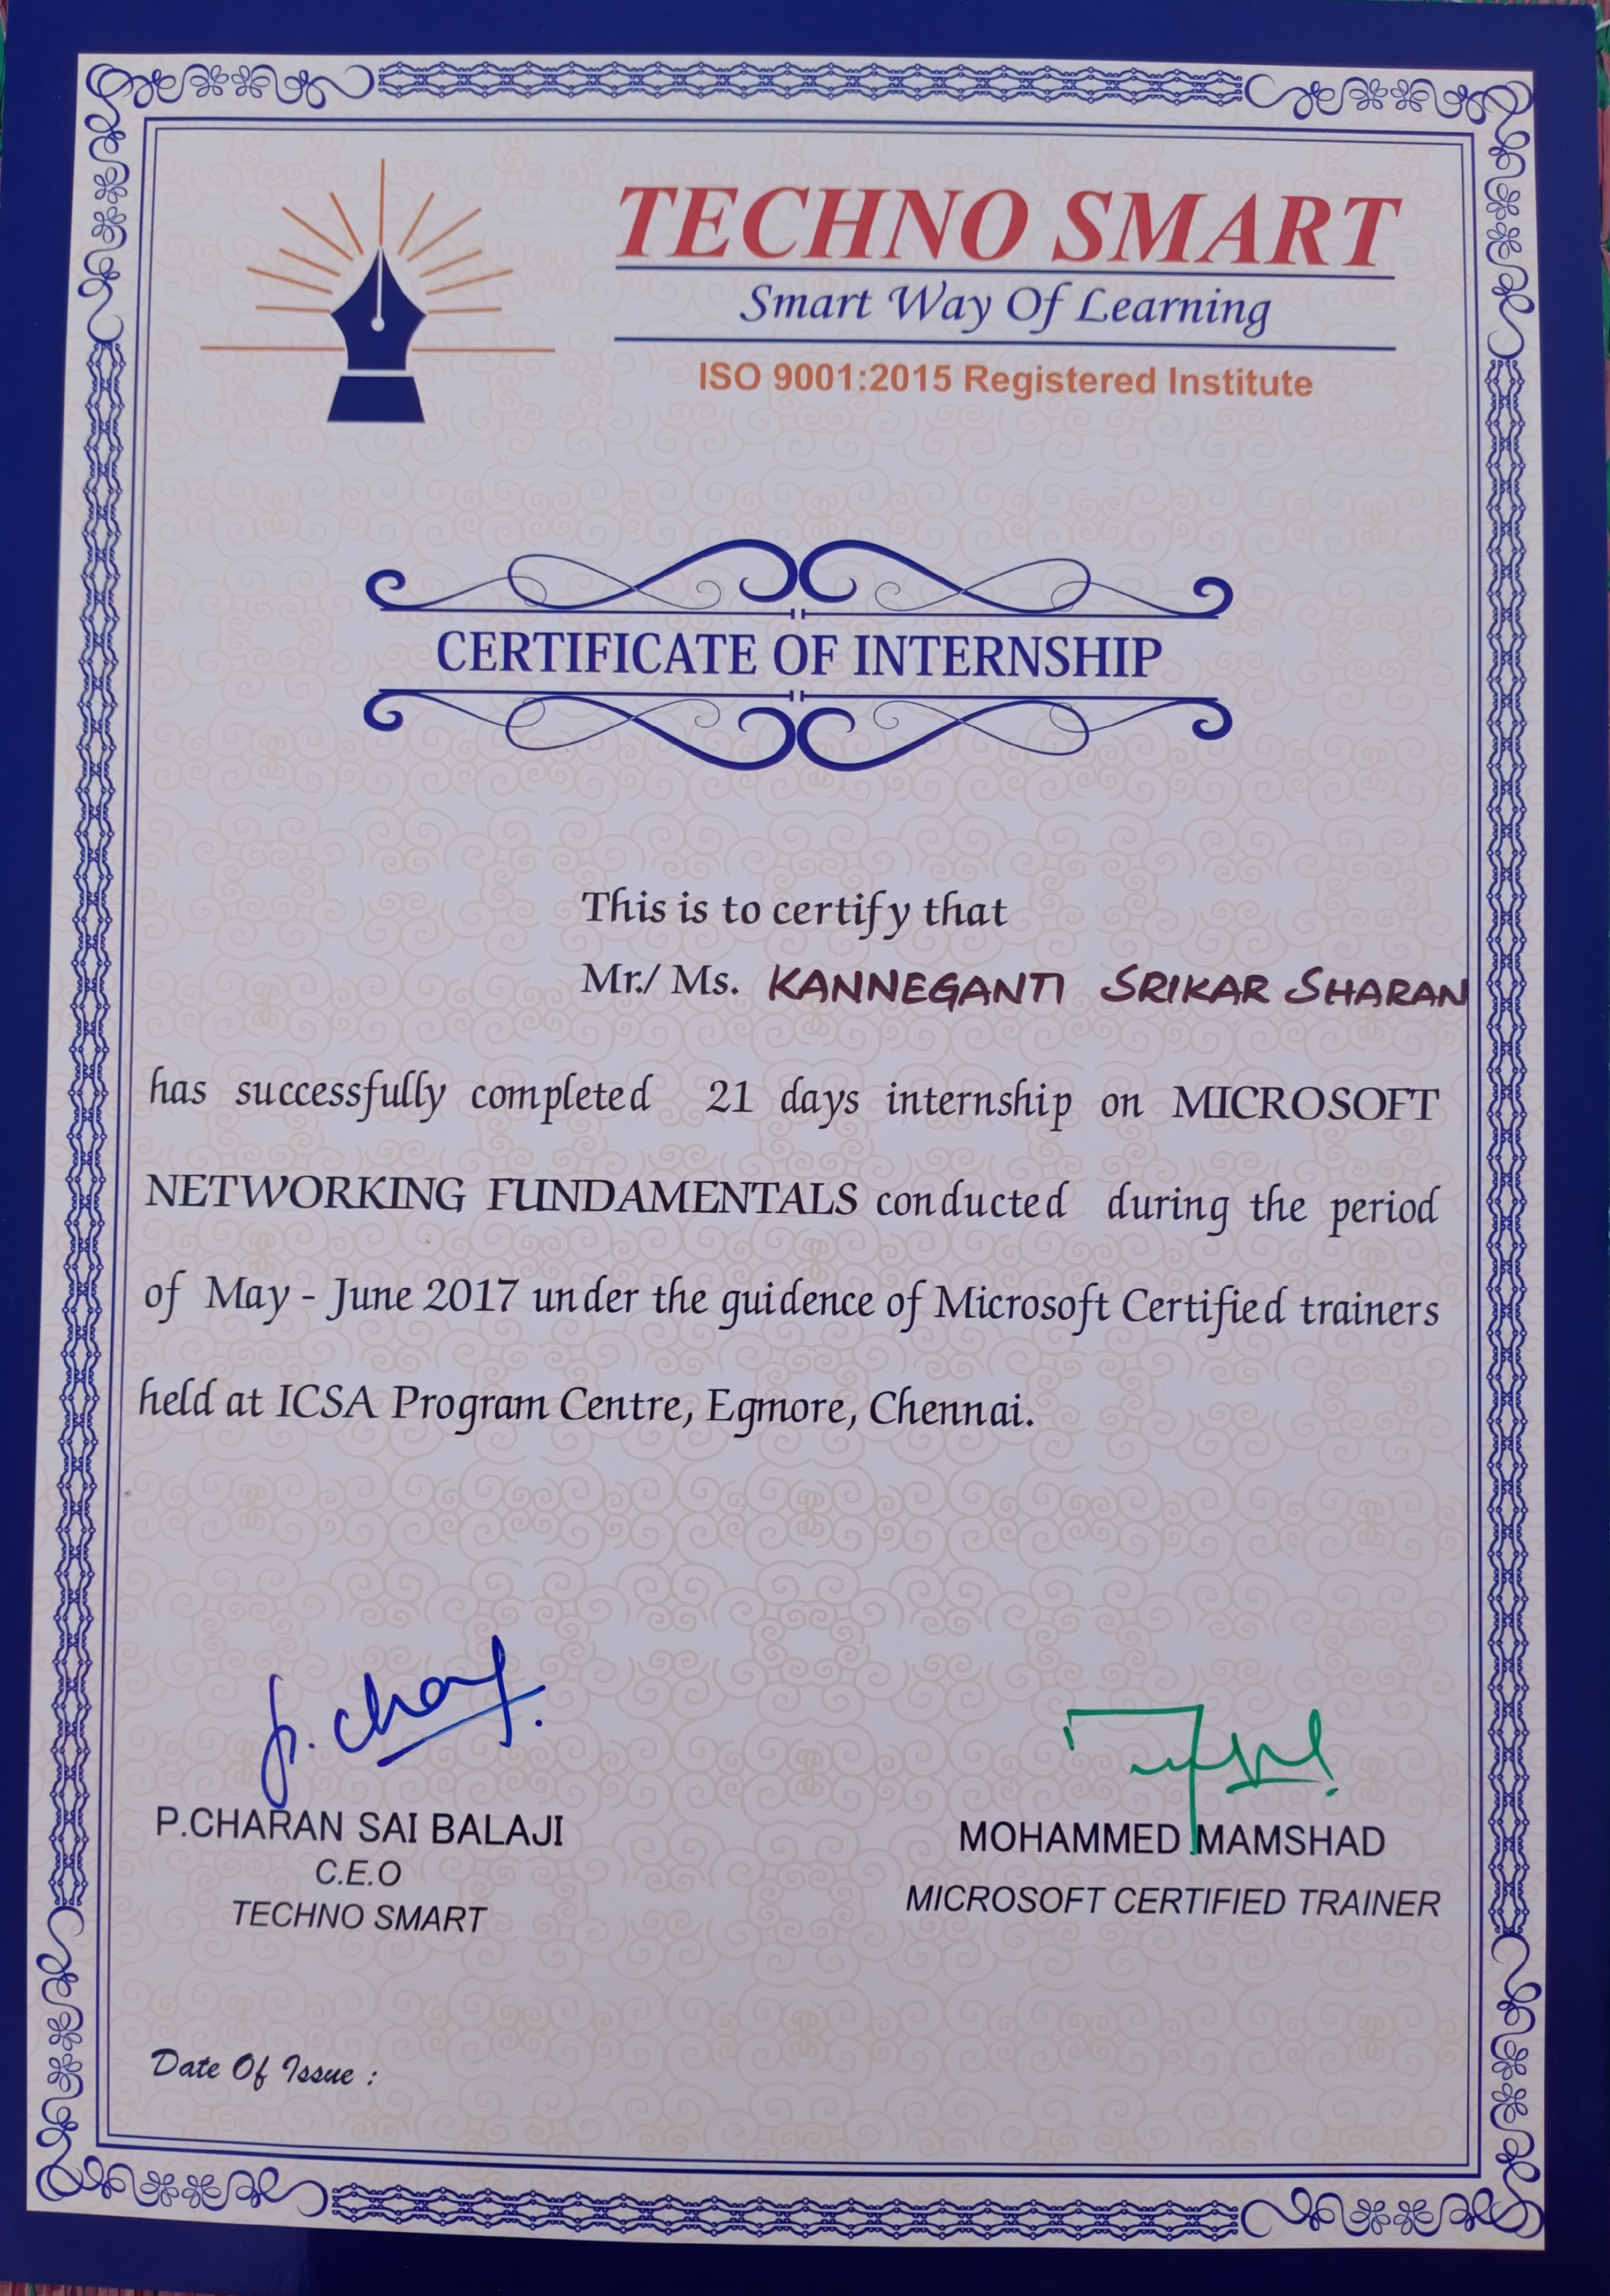 TECHNO SMART
Smart Way Of Learning
ISO 9001:2015 Registered Institute
CERTIFICATE OF INTERNSHIP
This is to certify that
Mr./ Ms. KANNEGANTI SRIKAR SHARAN
has successfully completed 21 days internship on MICROSOFT
NETWORKING FUNDAMENTALS conducted during the period
of May - June 2017 under the guidence of Microsoft Certified trainers
held at ICSA Program Centre, Egmore, Chennai.
p. charan
P.CHARAN SAI BALAJI
C.E.O
TECHNO SMART
MOHAMMED MAMSHAD
MICROSOFT CERTIFIED TRAINER
Date Of Issue :